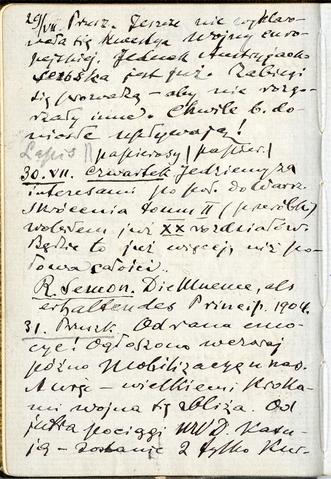 29/VII. Prusz. Jeszcze nie wyklaro-
wała się kwestya wojny euro-
pejskiej. Jednak Austryjacko
serbska jest już. Zabiegi
się prowadzą – aby nie rozgo-
rzały inne. Chwile b. do-
niosłe upływają!
Lapis papierosy papier.
30. VII. czwartek jedziemy za
interesami po poł. do Warsz.
Skrócenia tomu II (przeróbki)
wziąłem już XX rozdziałów.
Będzie to już więcej niż po-
łowa całości.
R. Semon. Die Mneme, als
erhaltendes Princip. 1904.
31. Pruszk. Od rana emo-
cye! Ogłoszono wczoraj
późno mobilizacyę u nas.
A więc – wielkiemi kroka-
mi wojna się zbliża. Od
jutra pociągi WWD. kasu-
ją – zostanie 2 tylko kur-